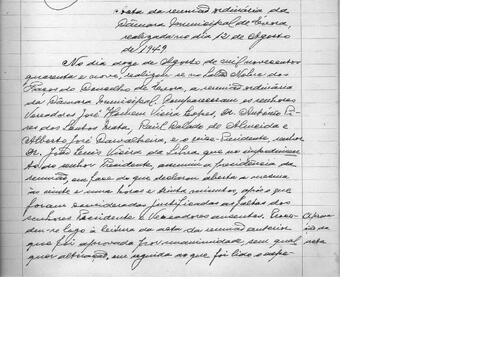 Acta da reunião ordinária da
Câmara Municipal de Évora,
realizada no dia 12 de Agosto
de 1949
No dia doze de Agosto de mil novecentos
quarenta e nove, realizou-se no Salão Nobre dos
Paços do Concelho de Évora, a reunião ordinária
da Câmara Municipal. Compareceram os senhores
Vereadores José Homem Vieira Lopes, Dr. António Pi-
res dos Santos, Raúl de Almeida e
Alberto José Carvalheira, e o vice-Presidente, senhor
Dr. João Luís Vieira da Silva que no impedimen-
to do senhor Presidente, assumiu a presidência da
reunião, em face do que declarou aberta a mesma
às vinte e uma horas e trinta minutos, após o que
foram consideradas justificadas as faltas dos
senhores Presidente e Vereadores ausentes. Proce-
deu-se logo à leitura da acta da reunião anterior
que foi aprovada por unanimidade sem qual-
quer alteração, em seguida ao que foi lido o expe-
Aprova-
ção da
acta